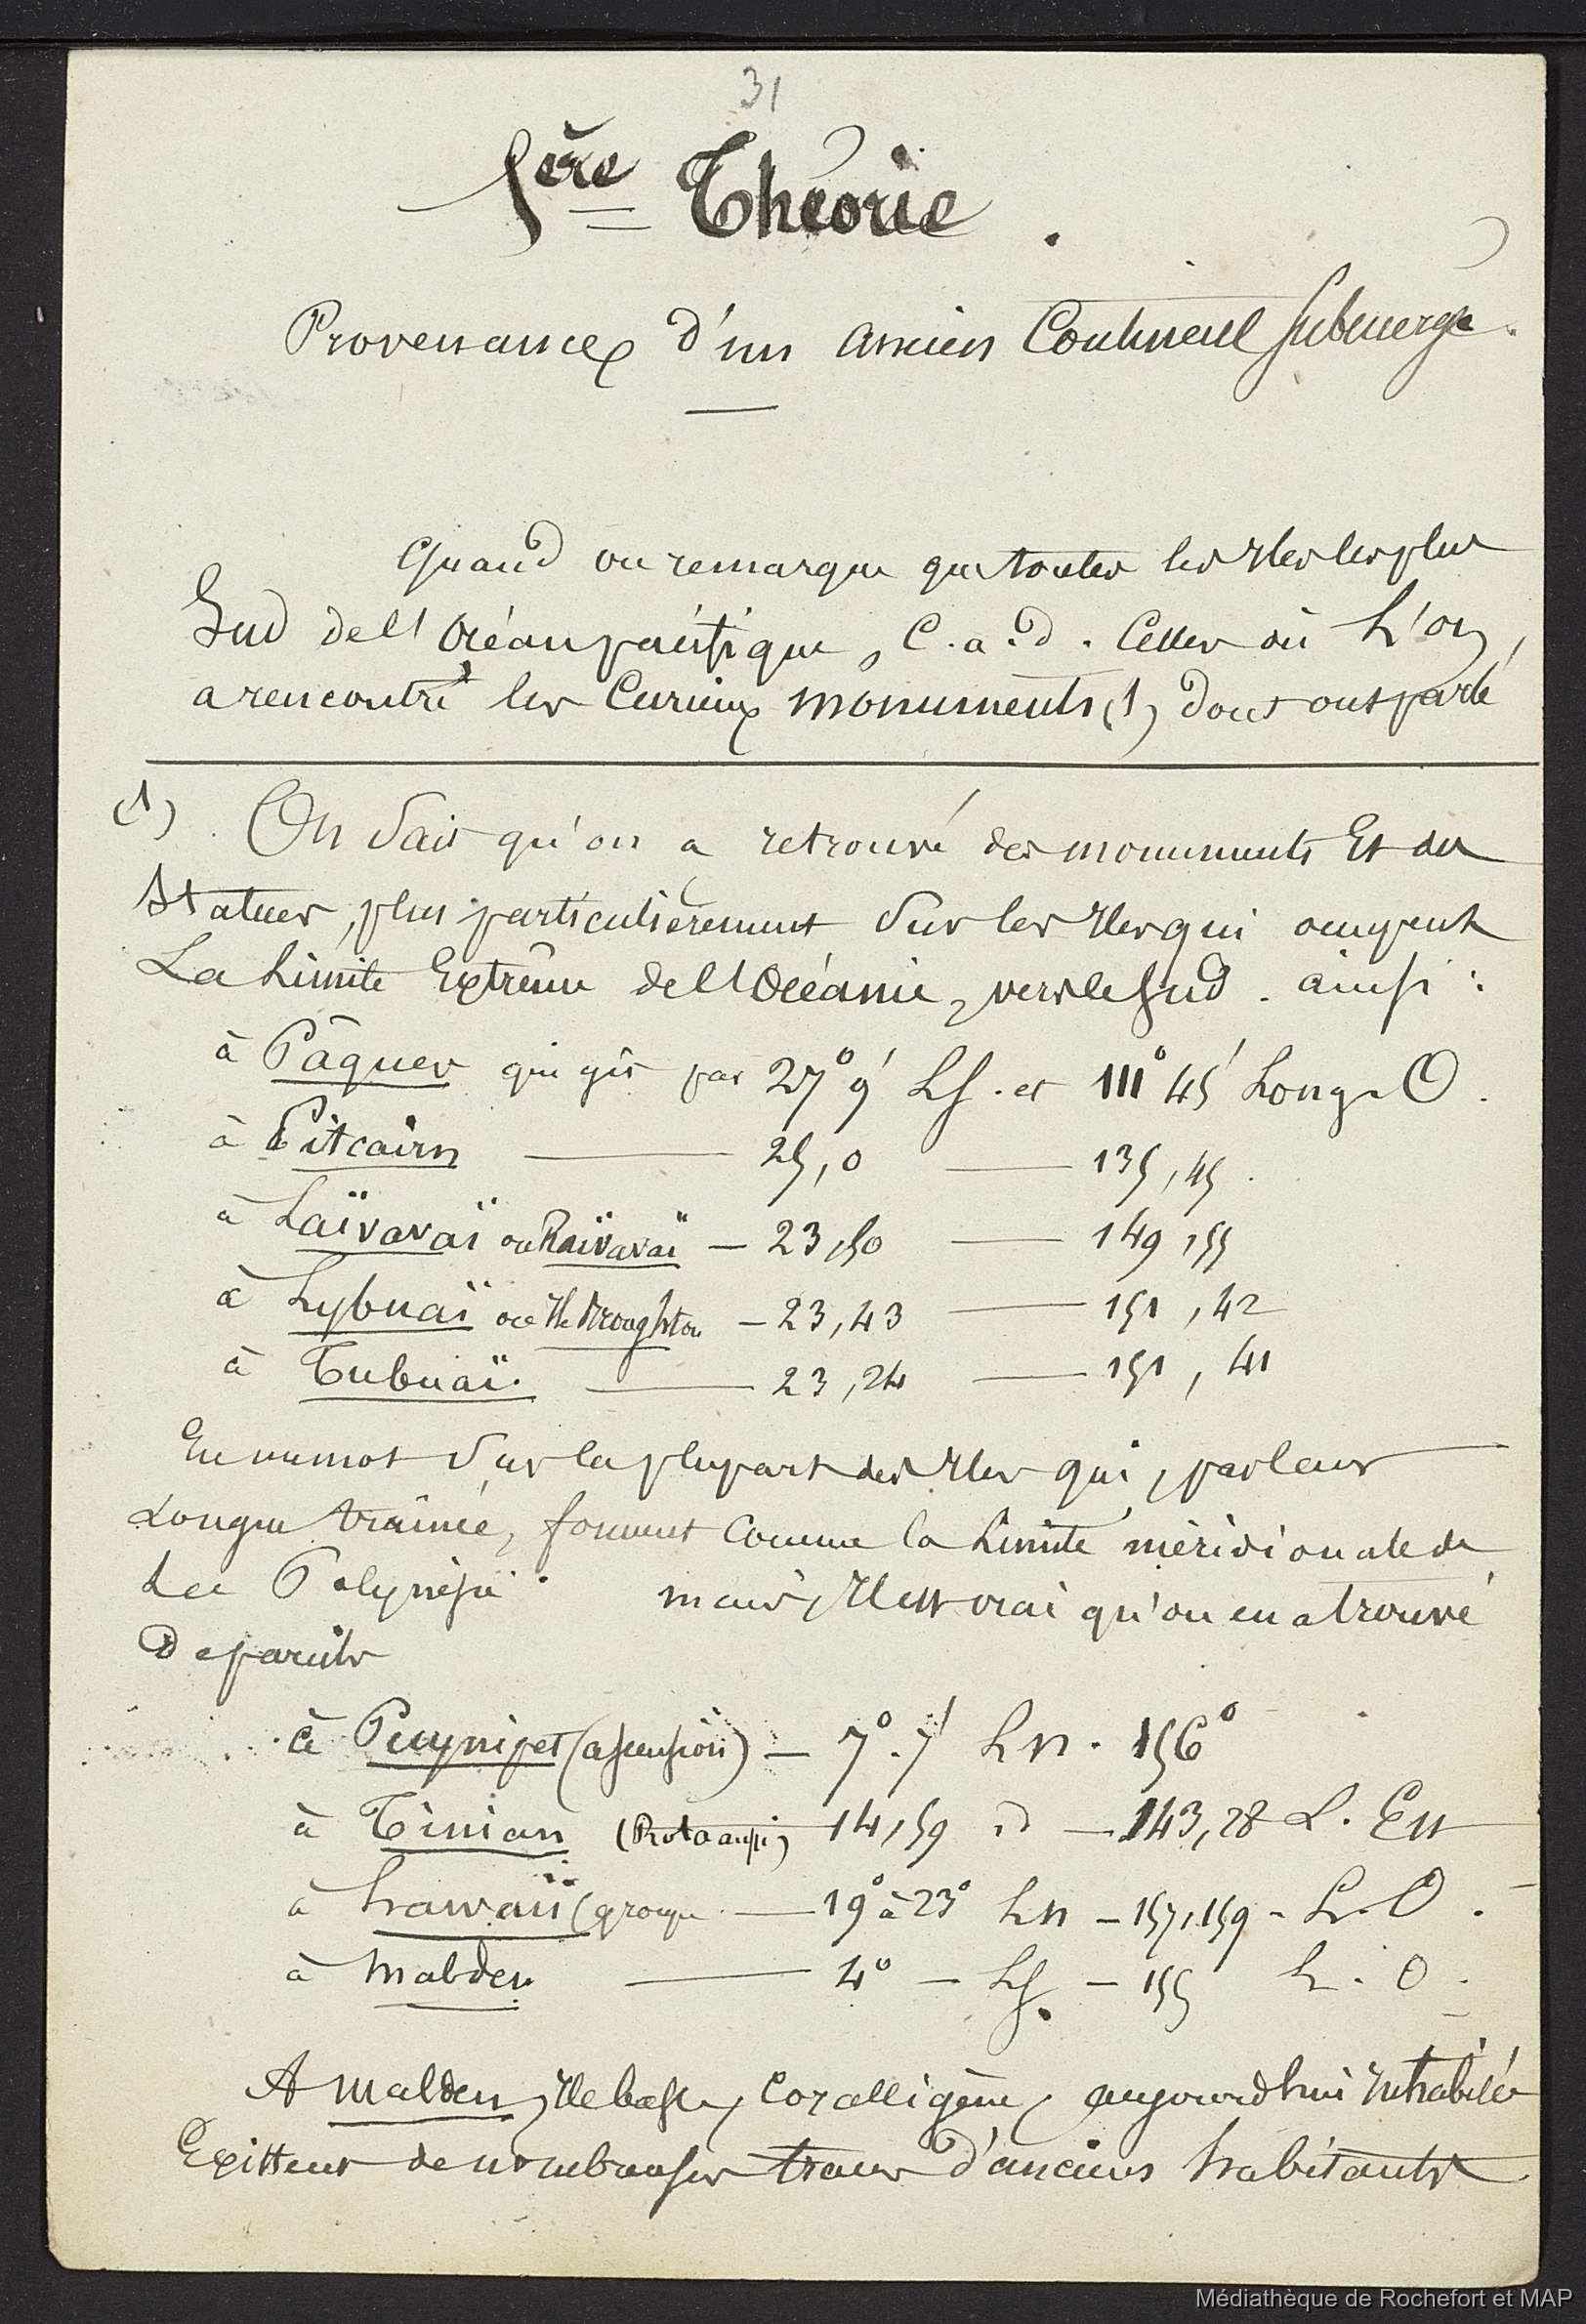 31
1ère Théorie.
Provenance d'un ancien Continent submergé.
Quand on remarque que toutes les Iles les plus
Sud de l'Océan pacifique, C. a. d. Celles où L'on
a rencontré les Curieux monuments (1) dont ont parlé
(1) On sait qu'on a retrouvé des monuments Et des
Statues, plus particulièrement sur les Iles qui occupent
La Limite Extrême de l'Océanie, vers le Sud. ainsi :
à Pâques qui gît par 27° 9' LS. et 111° 45' Long. O.
à Pitcairn — 25,0 — 135,45.
à Laïvavaï ou Raïvavaï — 23,50 — 149,55
à Lybuaï ou Ile Broughton — 23,43 — 151,42
à Tubuaï. — 23,24 — 151, 41
En un mot sur la plupart des Iles qui, par leur
Longue traînée, forment Comme la Limite méridionale de
La Polynésie. mais, Il est vrai qu'on en a trouvé
De pareils
à Puynipet (ascension) — 7°. 7' Ln. 156°
à Tinian (Rota aussi) 14,59 d — 143,28 L. Est
à hawaïi (groupe — 19° à 23° Ln — 157,159 - L. O.
à Malden — 4° — LS. — 155 L. O.
A Malden, Ile basse, Coralligène, aujourd'hui Inhabitée
Existent de nombreuses traces d'anciens habitants
Médiathèque de Rochefort et MAP